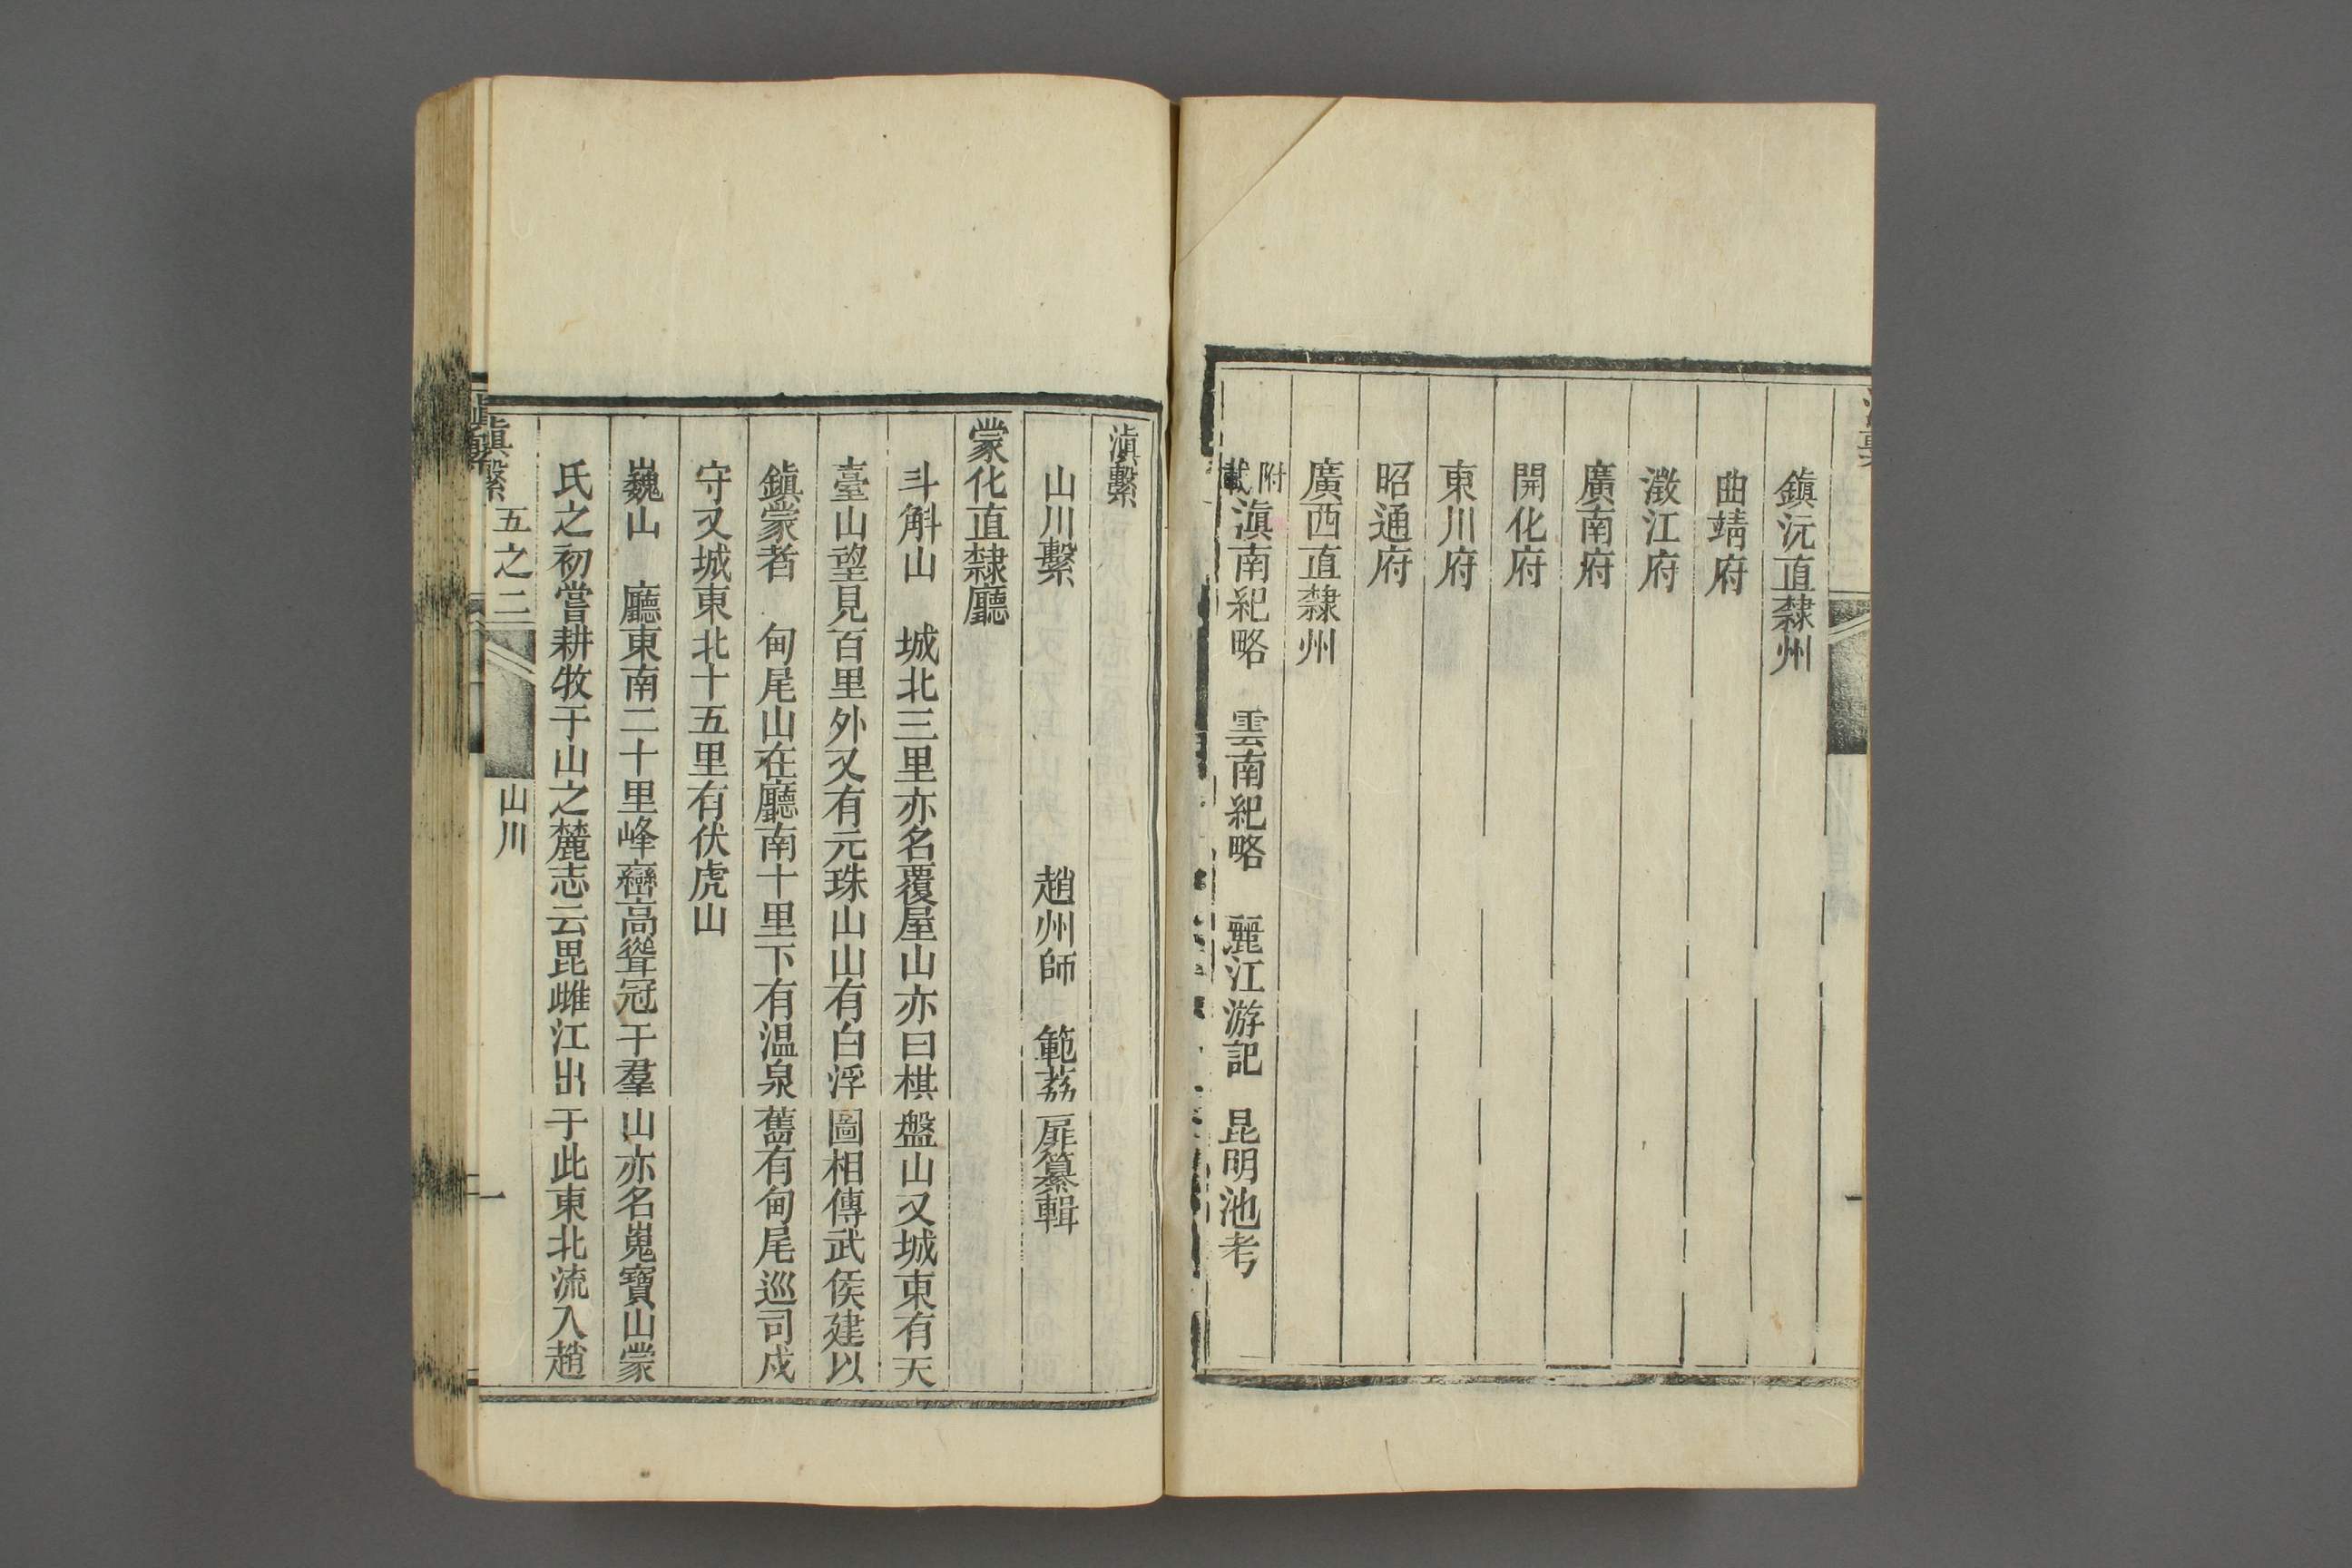 鎮沅直隸州
曲靖府
澂江府
廣南府
開化府
東川府
昭通府
廣西直隸州
附載滇南紀略　雲南紀略　麗江游記　昆明池考
滇繫
山川繫　趙州師　範荔扉纂輯
蒙化直隸廳
斗斛山　城北三里亦名覆屋山亦曰棋盤山又城東有天
臺山望見百里外又有元珠山山有白浮圖相傳武侯建以
鎮蒙者　甸尾山在廳南十里下有温泉舊有甸尾巡司戍
守又城東北十五里有伏虎山
巍山　廳東南二十里峰巒高聳冠干羣山亦名嵬寶山蒙
氏之初嘗耕牧于山之麓志云毘雌江出于此東北流入趙
滇繫　五之二　山川　一